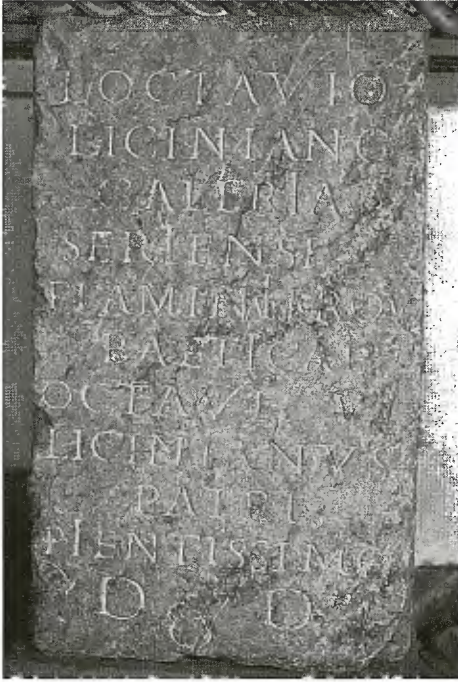 L OCTAVIO
LICINIANO
GALERIA
SERIENSI
FLAMINI
BAETICAE
OCTAVI
LICINIANVS
PATRI
PIENTISSIMO
D D